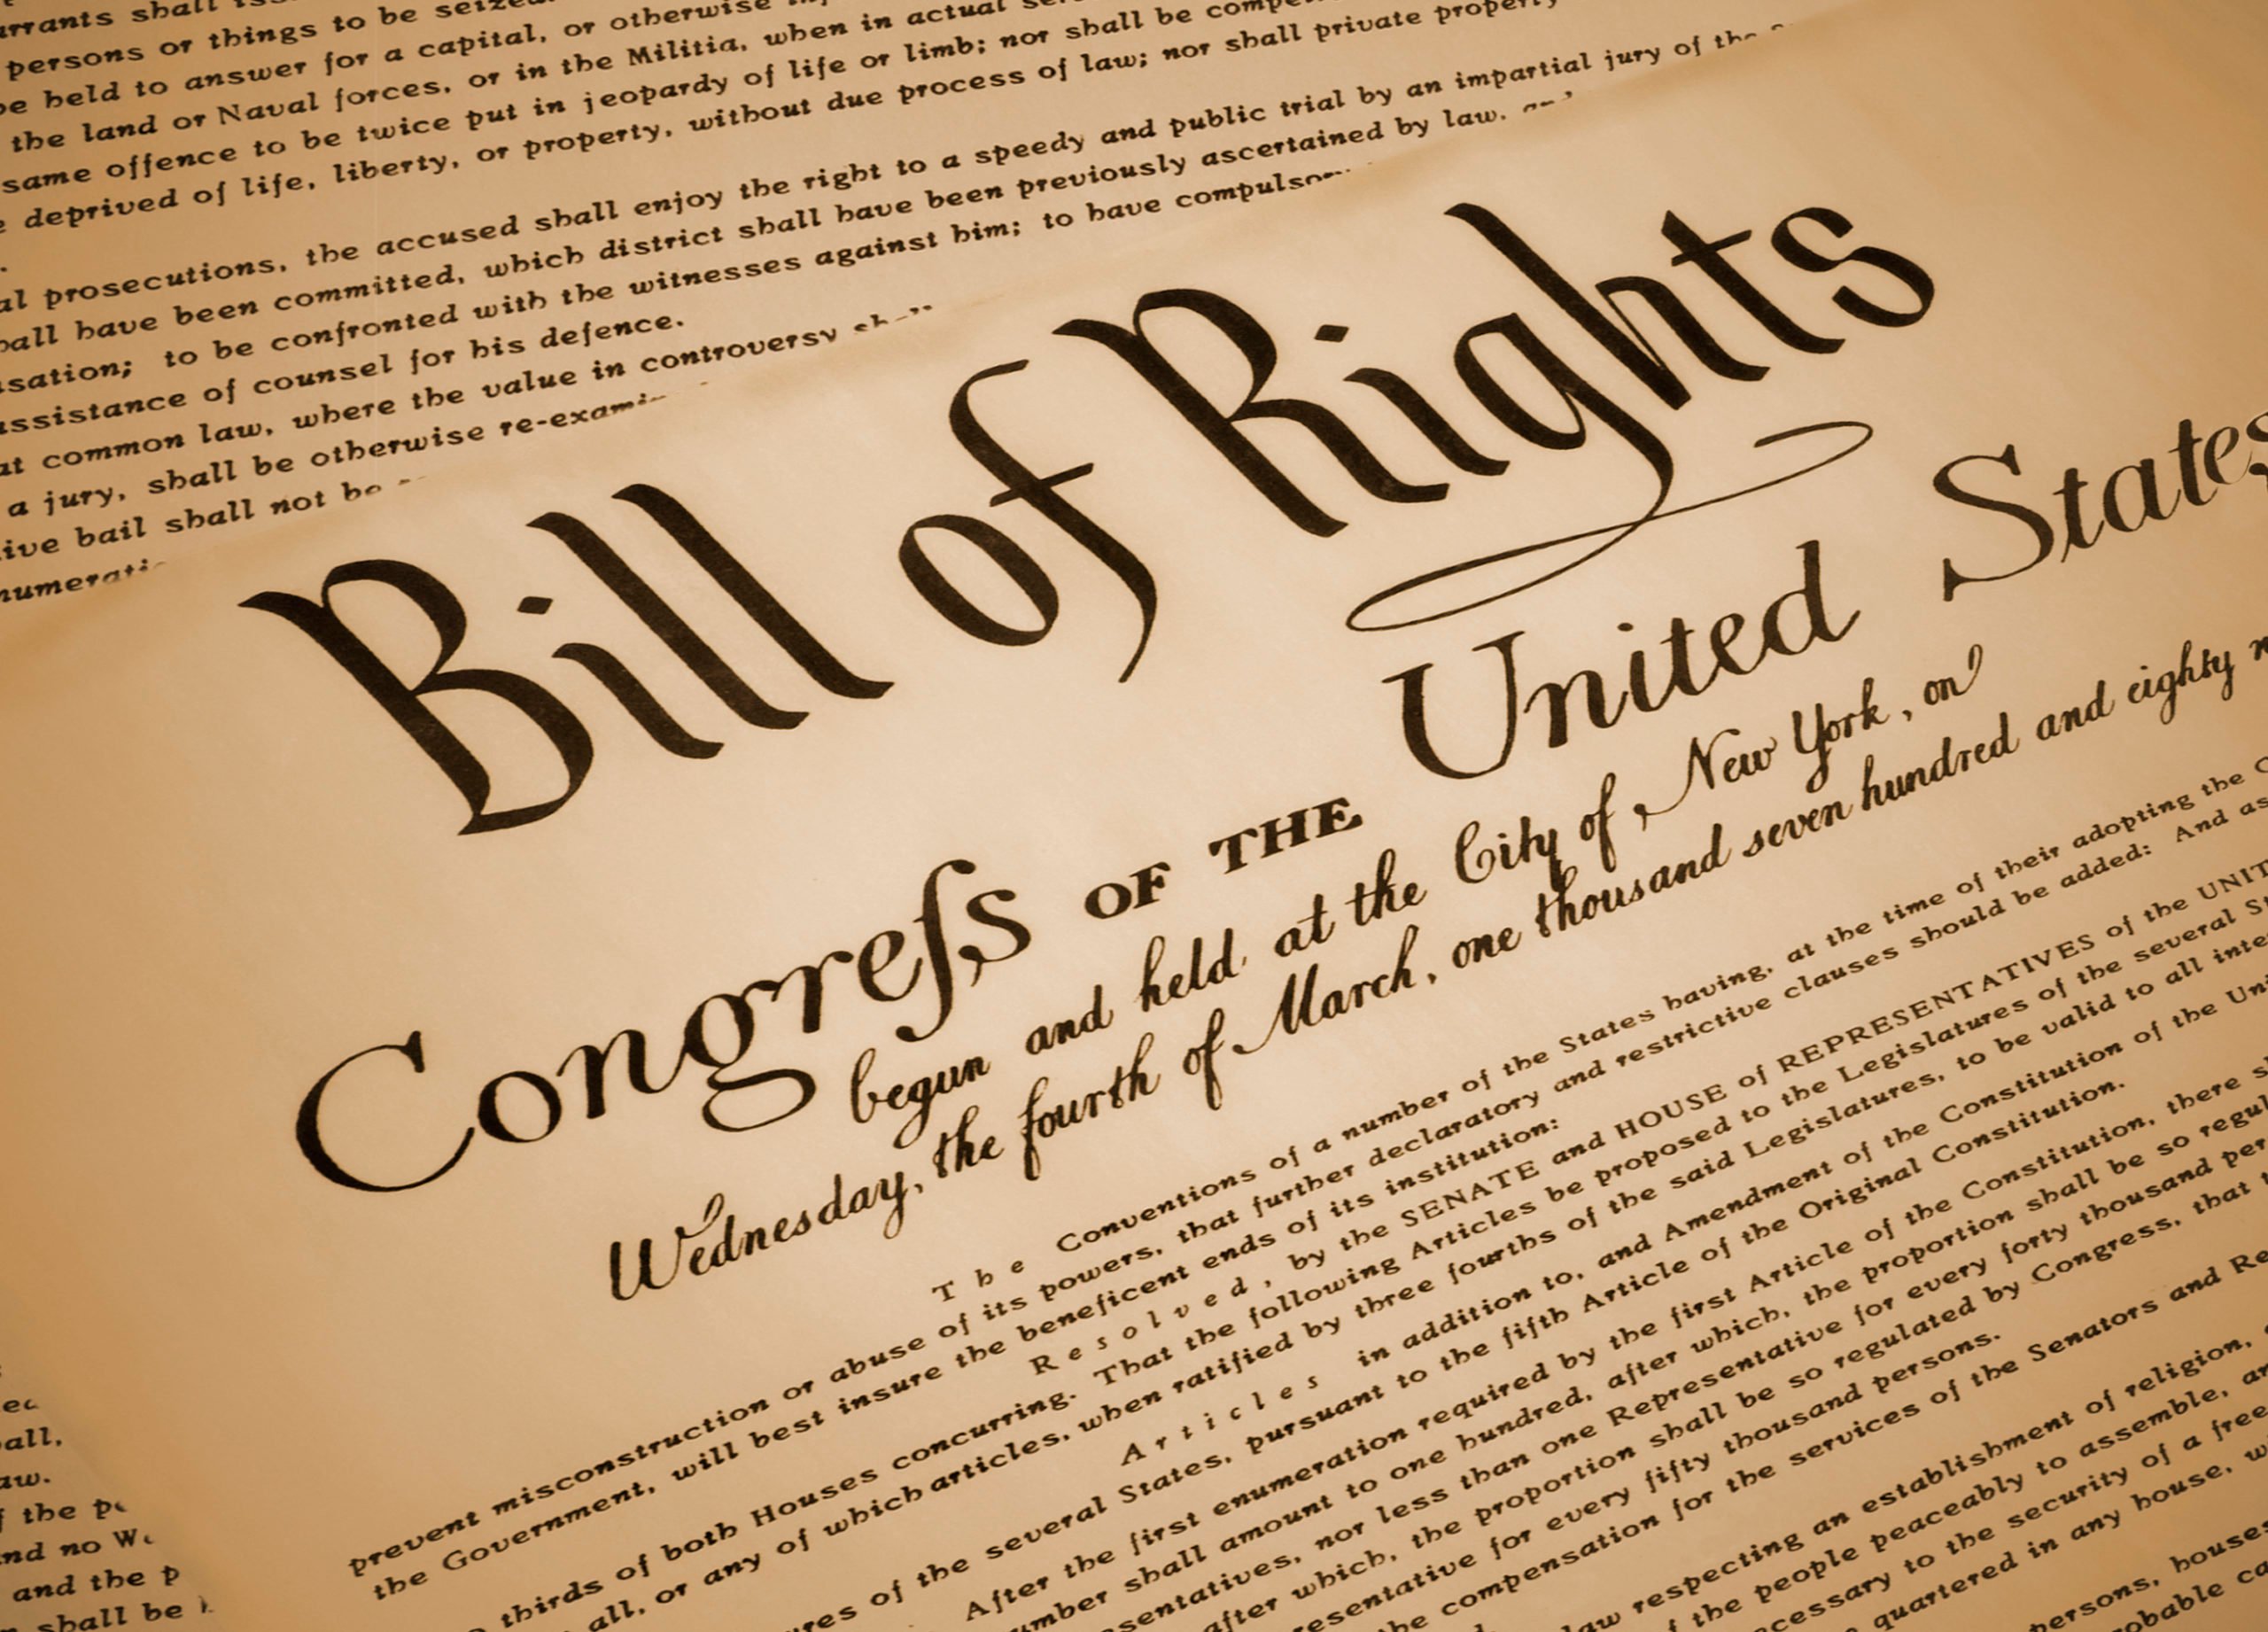 persons or things to be
be held to answer for a capital, or otherwise
the land or Naval forces, or in the Militia, when in actual
same offence to be twice put in jeopardy of life or limb; nor shall be
deprived of life, liberty, or property, without due process of law; nor shall private property
prosecutions, the accused shall enjoy the right to a speedy and public trial by an impartial jury of the
have been committed, which district shall have been previously ascertained by law, and
to be confronted with the witnesses against him; to have
assistance of counsel for his defence.
at common law, where the value in controversy
a jury, shall be otherwise
bail shall not be
Bill of Rights
Congreſs OF THE United States
begun and held at the City of New York, on
Wednesday, the fourth of March, one thousand seven hundred and eighty
The Conventions of a number of the States having, at the time of their adopting the
prevent misconstruction or abuse of its powers, that further declaratory and restrictive clauses should be added: And as
the Government, will best insure the beneficent ends of its institution:
Resolved, by the SENATE and HOUSE of REPRESENTATIVES of the
thirds of both Houses concurring. That the following Articles be proposed to the Legislatures of the several
all, or any of which articles, when ratified by three fourths of the said Legislatures, to be valid to all
Articles in addition to, and Amendment of the Constitution of the
of the several States, pursuant to the fifth Article of the Original Constitution.
After the first enumeration required by the first Article of the Constitution, there
shall amount to one hundred, after which, the proportion shall be so
nor less than one Representative for every forty thousand
after which, the proportion shall be so regulated by Congress, that
for every fifty thousand persons.
the compensation for the services of the Senators and
law respecting an establishment of religion,
the people peaceably to assemble,
to the security of a free
quartered in any house,
persons,
the
and no
and the
shall be